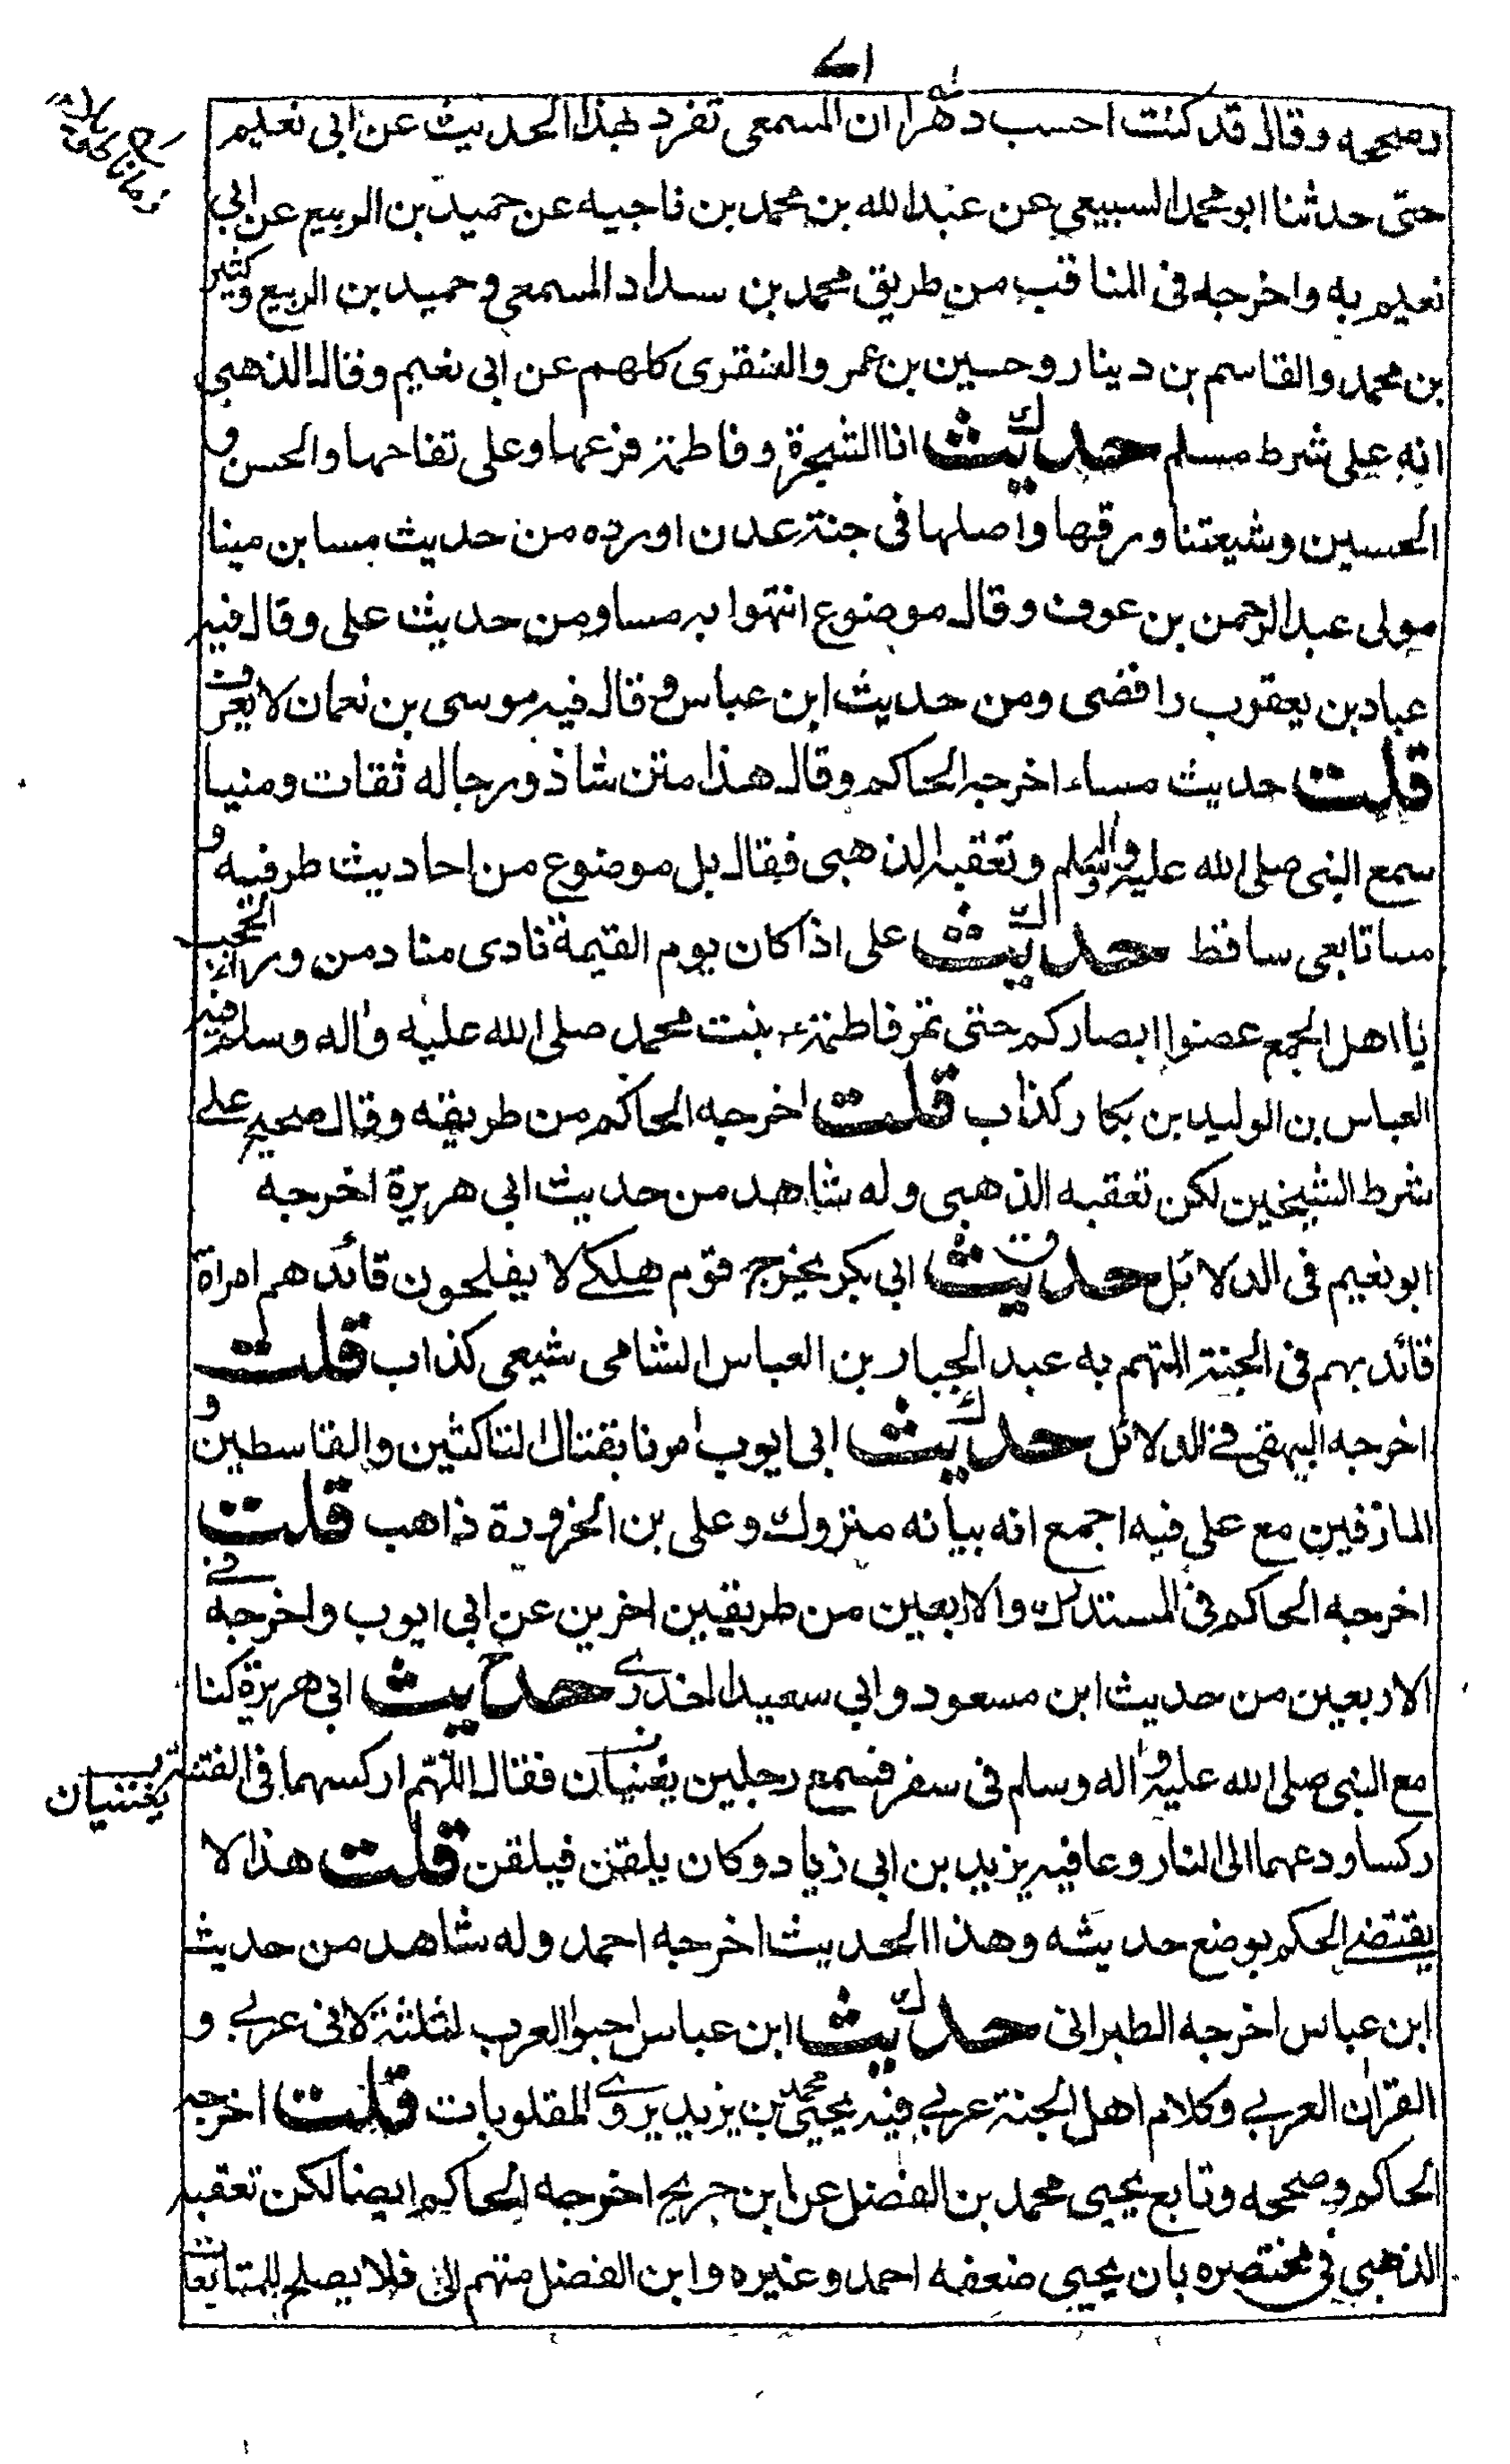 ٧١
وصححه وقال قد كنت احسب دهرا ان المسمعى تفرد بهذا الحديث عن ابى نعيم
حتى حدثنا ابو محمد السبيعي عن عبد الله بن محمد بن ناجيه عن حميد بن الربيع عن ابي
نعيم به واخرجه فى المناقب من طريق محمد بن سداد المسمعى وحميد بن الربيع وكثير
بن محمد والقاسم بن دينار وحسين بن عمرو العنقرى كلهم عن ابى نعيم وقال الذهبى
انه على شرط مسلم حديث انا الشجرة وفاطمة فرعها وعلى لقاحها والحسن و
الحسين وشيعتنا ورقها واصلها فى جنة عدن اورده من حديث مسا بن مينا
مولى عبد الرحمن بن عوف وقال موضوع اتهموا به مسا ومن حديث على وقال فيه
عباد بن يعقوب رافضى ومن حديث ابن عباس وقال فيه موسى بن نعمان لا يعرف
قلت حديث مساء اخرجه الحاكم وقال هذا متن شاذ ورجاله ثقات ومنيا
سمع النبى صلى الله عليه واله وسلم وتعقبه الذهبى فقال بل موضوع من احاديث طرفيه و
مسا تابعى ساقط حديث على اذا كان يوم القيمة نادى مناد من وراء الحجب
يا اهل الجمع غضوا ابصاركم حتى تمر فاطمة بنت محمد صلى الله عليه واله وسلم فيه
العباس بن الوليد بن بكار كذاب قلت اخرجه الحاكم من طريقه وقال صحيح على
شرط الشيخين لكن تعقبه الذهبى وله شاهد من حديث ابى هريرة اخرجه
ابو نعيم فى الدلائل حديث ابى بكر يخرج قوم هلكے لا يفلحون قائدهم امراة
قائدهم فى الجنة المتهم به عبد الجبار بن العباس الشامى شيعى كذاب قلت
اخرجه البيهقى فے الدلائل حديث ابى ايوب امرنا بقتال الناكثين والقاسطين و
المارقين مع على فيه اجمع انه بيانه متروك وعلى بن الخرورة ذاهب قلت
اخرجه الحاكم فى المستدرك والاربعين من طريقين اخرين عن ابى ايوب واخرجه فے
الاربعين من حديث ابن مسعود وابي سعيد الخدرے حديث ابى هريرة كنا
مع النبى صلى الله عليه واله وسلم فى سفر فسمع رجلين يغنيان فقال اللهم اركسهما فى الفتنة
يتغنيان
ركسا ودعهما الى النار وعا فيه يزيد بن ابى زياد وكان يلقن فيلقن قلت هذا لا
يقتضے الحكم بوضع حديثه وهذا الحديث اخرجه احمد وله شاهد من حديث
ابن عباس اخرجه الطبرانى حديث ابن عباس احبوا العرب لثلثة لانى عربے و
القران العربے وكلام اهل الجنة عربے فيه محمد يحيى بن يزيد يروے المقلوبات قلت اخرجه
الحاكم وصححه وتابع يحيى محمد بن الفضل عن ابن جريج اخرجه الحاكم ايضا لكن تعقبه
الذهبي فى مختصره بان يحيى ضعفه احمد وغيره وابن الفضل متهم الى فلا يصلح للمتابعات